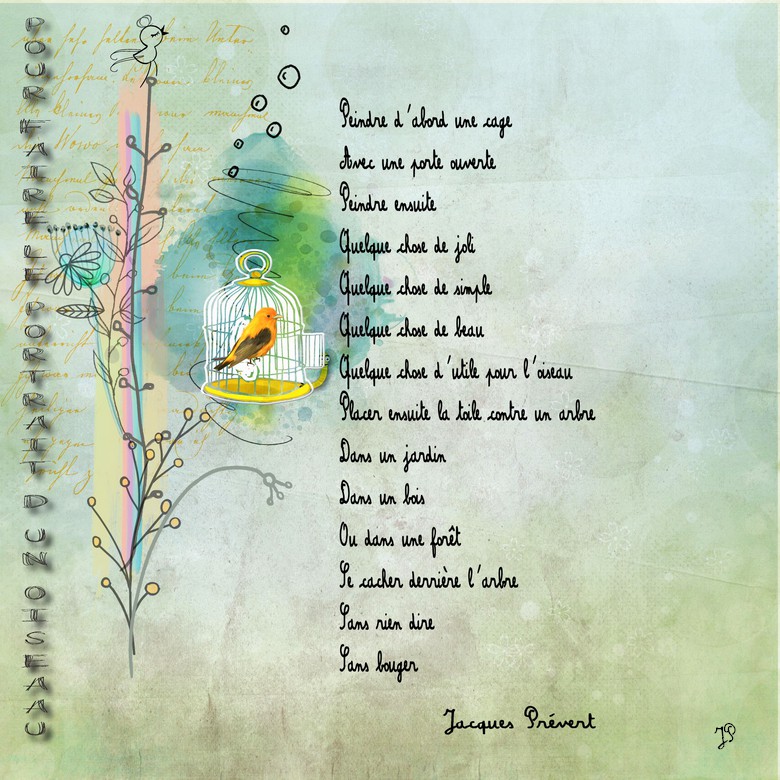 POUR FAIRE LE PORTRAIT D UN OISEAU
Peindre d'abord une cage
Avec une porte ouverte
Peindre ensuite
Quelque chose de joli
Quelque chose de simple
Quelque chose de beau
Quelque chose d'utile pour l'oiseau
Placer ensuite la toile contre un arbre
Dans un jardin
Dans un bois
Ou dans une forêt
Se cacher derrière l'arbre
Sans rien dire
Sans bouger
Jacques Prévert
JP